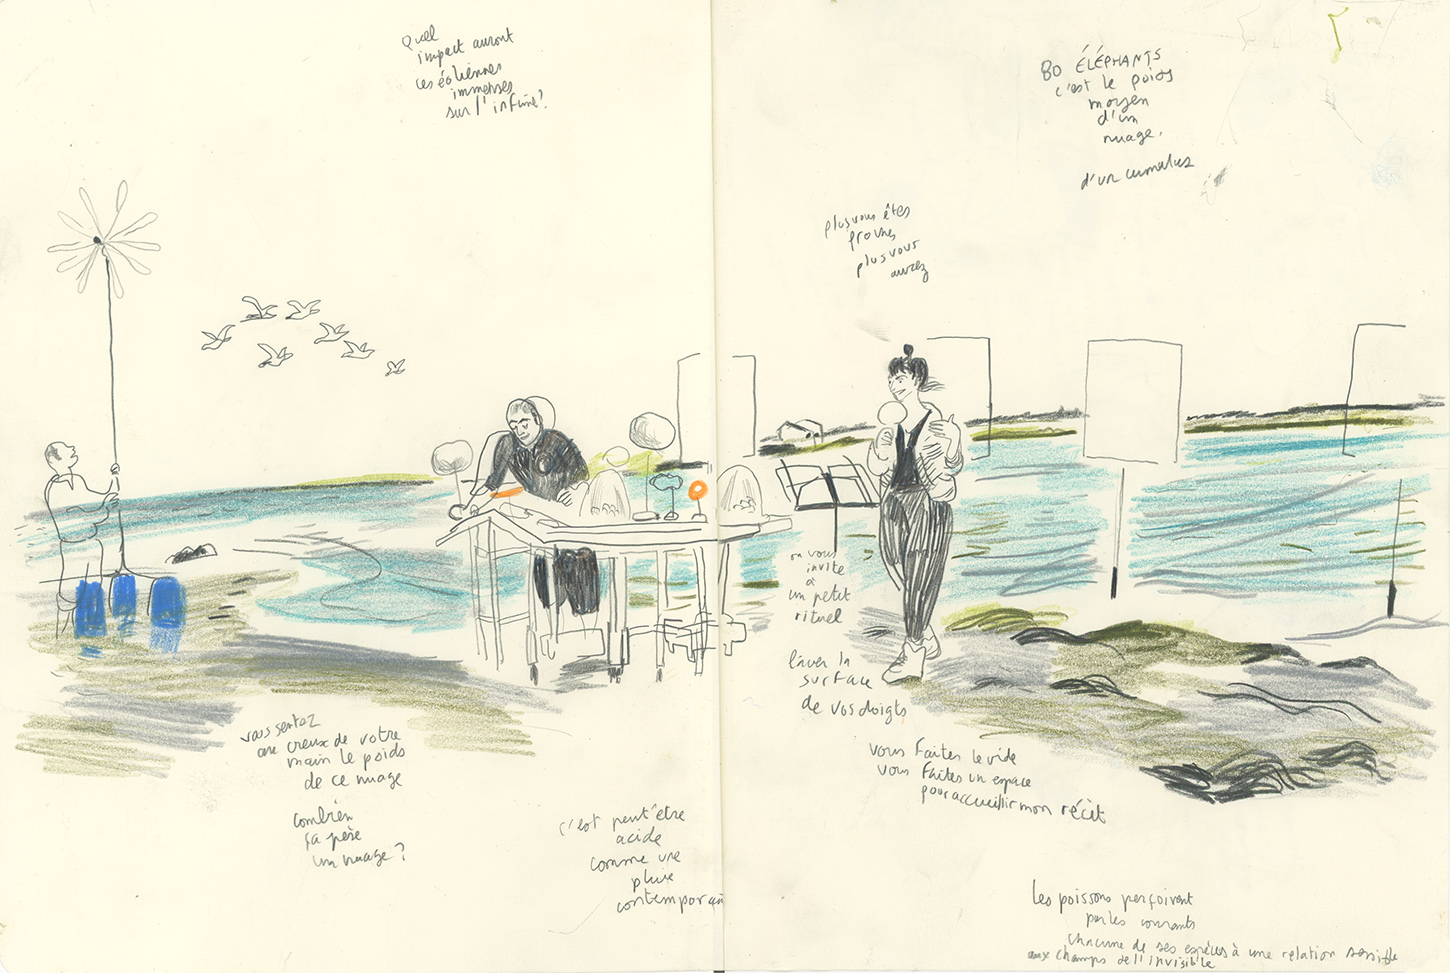 Quel
impact auront
ces éoliennes
immenses
sur l'infime?
80 ÉLÉPHANTS
c'est le poids
moyen
d'un
nuage.
d'un cumulus
plus vous êtes
proches
plus vous
aurez
on vous
invite
à
un petit
rituel
laver la
surface
de vos doigts
vous faites le vide
vous faites un espace
pour accueillir mon récit
vous sentez
au creux de votre
main le poids
de ce nuage
combien
ça pèse
un nuage?
c'est peut être
acide
comme une
pluie
contemporain
les poissons perçoivent
par les courants
chacune de ses espèces à une relation sensible
aux champs de l'invisible